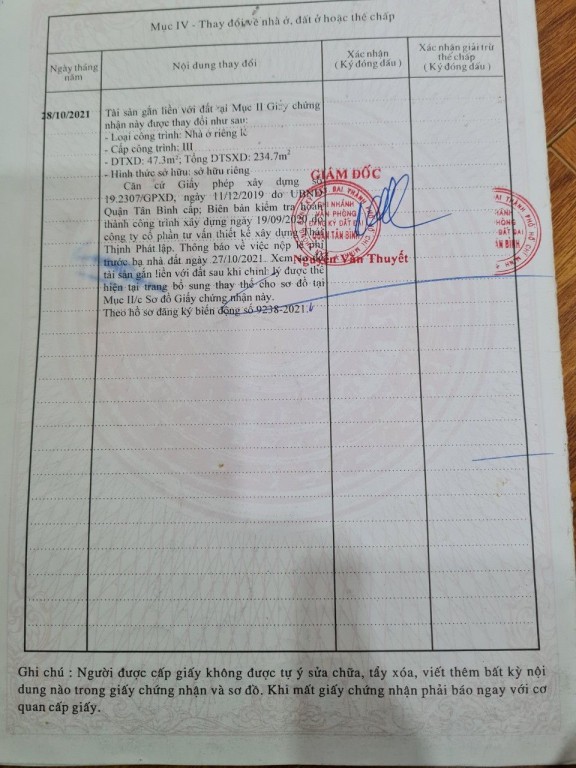 Mục IV - Thay đổi về nhà ở, đất ở hoặc thế chấp
Ngày tháng năm
Nội dung thay đổi
Xác nhận
(Ký đóng dấu)
Xác nhận giải trừ thế chấp
(Ký đóng dấu)
28/10/2021
Tài sản gắn liền với đất tại Mục II Giấy chứng
nhận này được thay đổi như sau:
- Loại công trình: Nhà ở riêng lẻ
- Cấp công trình: III
- DTXD: 47.3m²; Tổng DTSXD: 234.7m²
- Hình thức sở hữu: sở hữu riêng
Căn cứ Giấy phép xây dựng số
19.2307/GPXD, ngày 11/12/2019 do UBND
Quận Tân Bình cấp; Biên bản kiểm tra hoàn
thành công trình xây dựng ngày 19/09/2020 do
công ty cổ phần tư vấn thiết kế xây dựng
Thịnh Phát lập. Thông báo về việc nộp lệ phí
trước bạ nhà đất ngày 27/10/2021. Xem
tài sản gắn liền với đất sau khi chỉnh lý được thể
hiện tại trang bổ sung thay thế cho sơ đồ tại
Mục II/c Sơ đồ Giấy chứng nhận này.
Theo hồ sơ đăng ký biến động số 9238-2021.
GIÁM ĐỐC
CHI NHÁNH
VĂN PHÒNG
ĐĂNG KÝ ĐẤT ĐAI
QUẬN TÂN BÌNH
Nguyễn Văn Thuyết
Ghi chú : Người được cấp giấy không được tự ý sửa chữa, tẩy xóa, viết thêm bất kỳ nội
dung nào trong giấy chứng nhận và sơ đồ. Khi mất giấy chứng nhận phải báo ngay với cơ
quan cấp giấy.